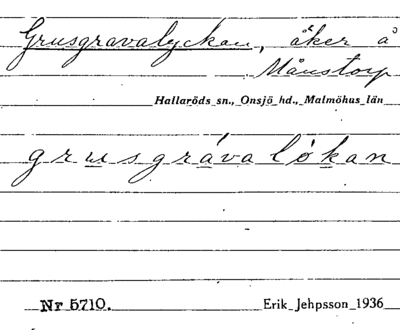 Grusgravalyckan, åker å
Månstorp
Hallaröds sn., Onsjö hd., Malmöhus län
grusgrávalókan
Nr 5710.
Erik Jehpsson 1936